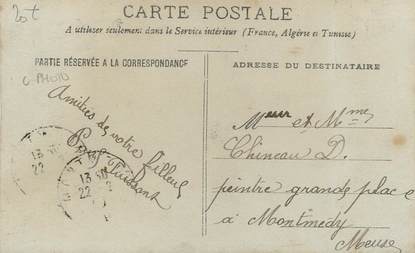 20t
CARTE POSTALE
A utiliser seulement dans le Service intérieur (France, Algérie et Tunisie)
PARTIE RÉSERVÉE A LA CORRESPONDANCE
C PHOTO
Amitiés de votre filleul
ADRESSE DU DESTINATAIRE
Mеur et Mme
Chineau D.
peintre grande place
a Montmédy
Meuse
13
22
13
22